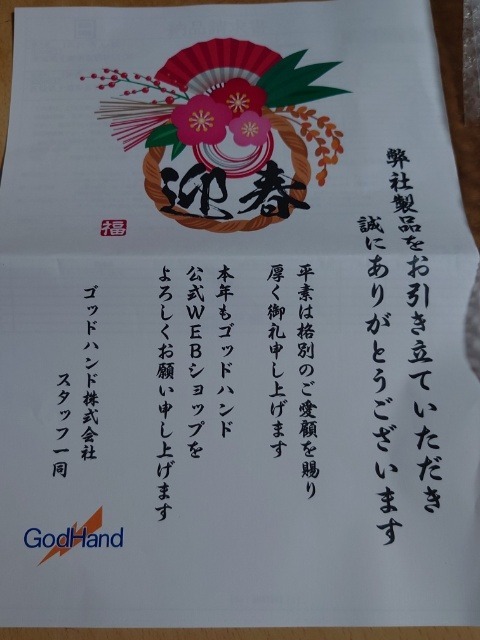 迎春
福
弊社製品をお引き立ていただき
誠にありがとうございます
平素は格別のご愛顧を賜り
厚く御礼申し上げます
本年もゴッドハンド
公式WEBショップを
よろしくお願い申し上げます
ゴッドハンド株式会社
スタッフ一同
GodHand